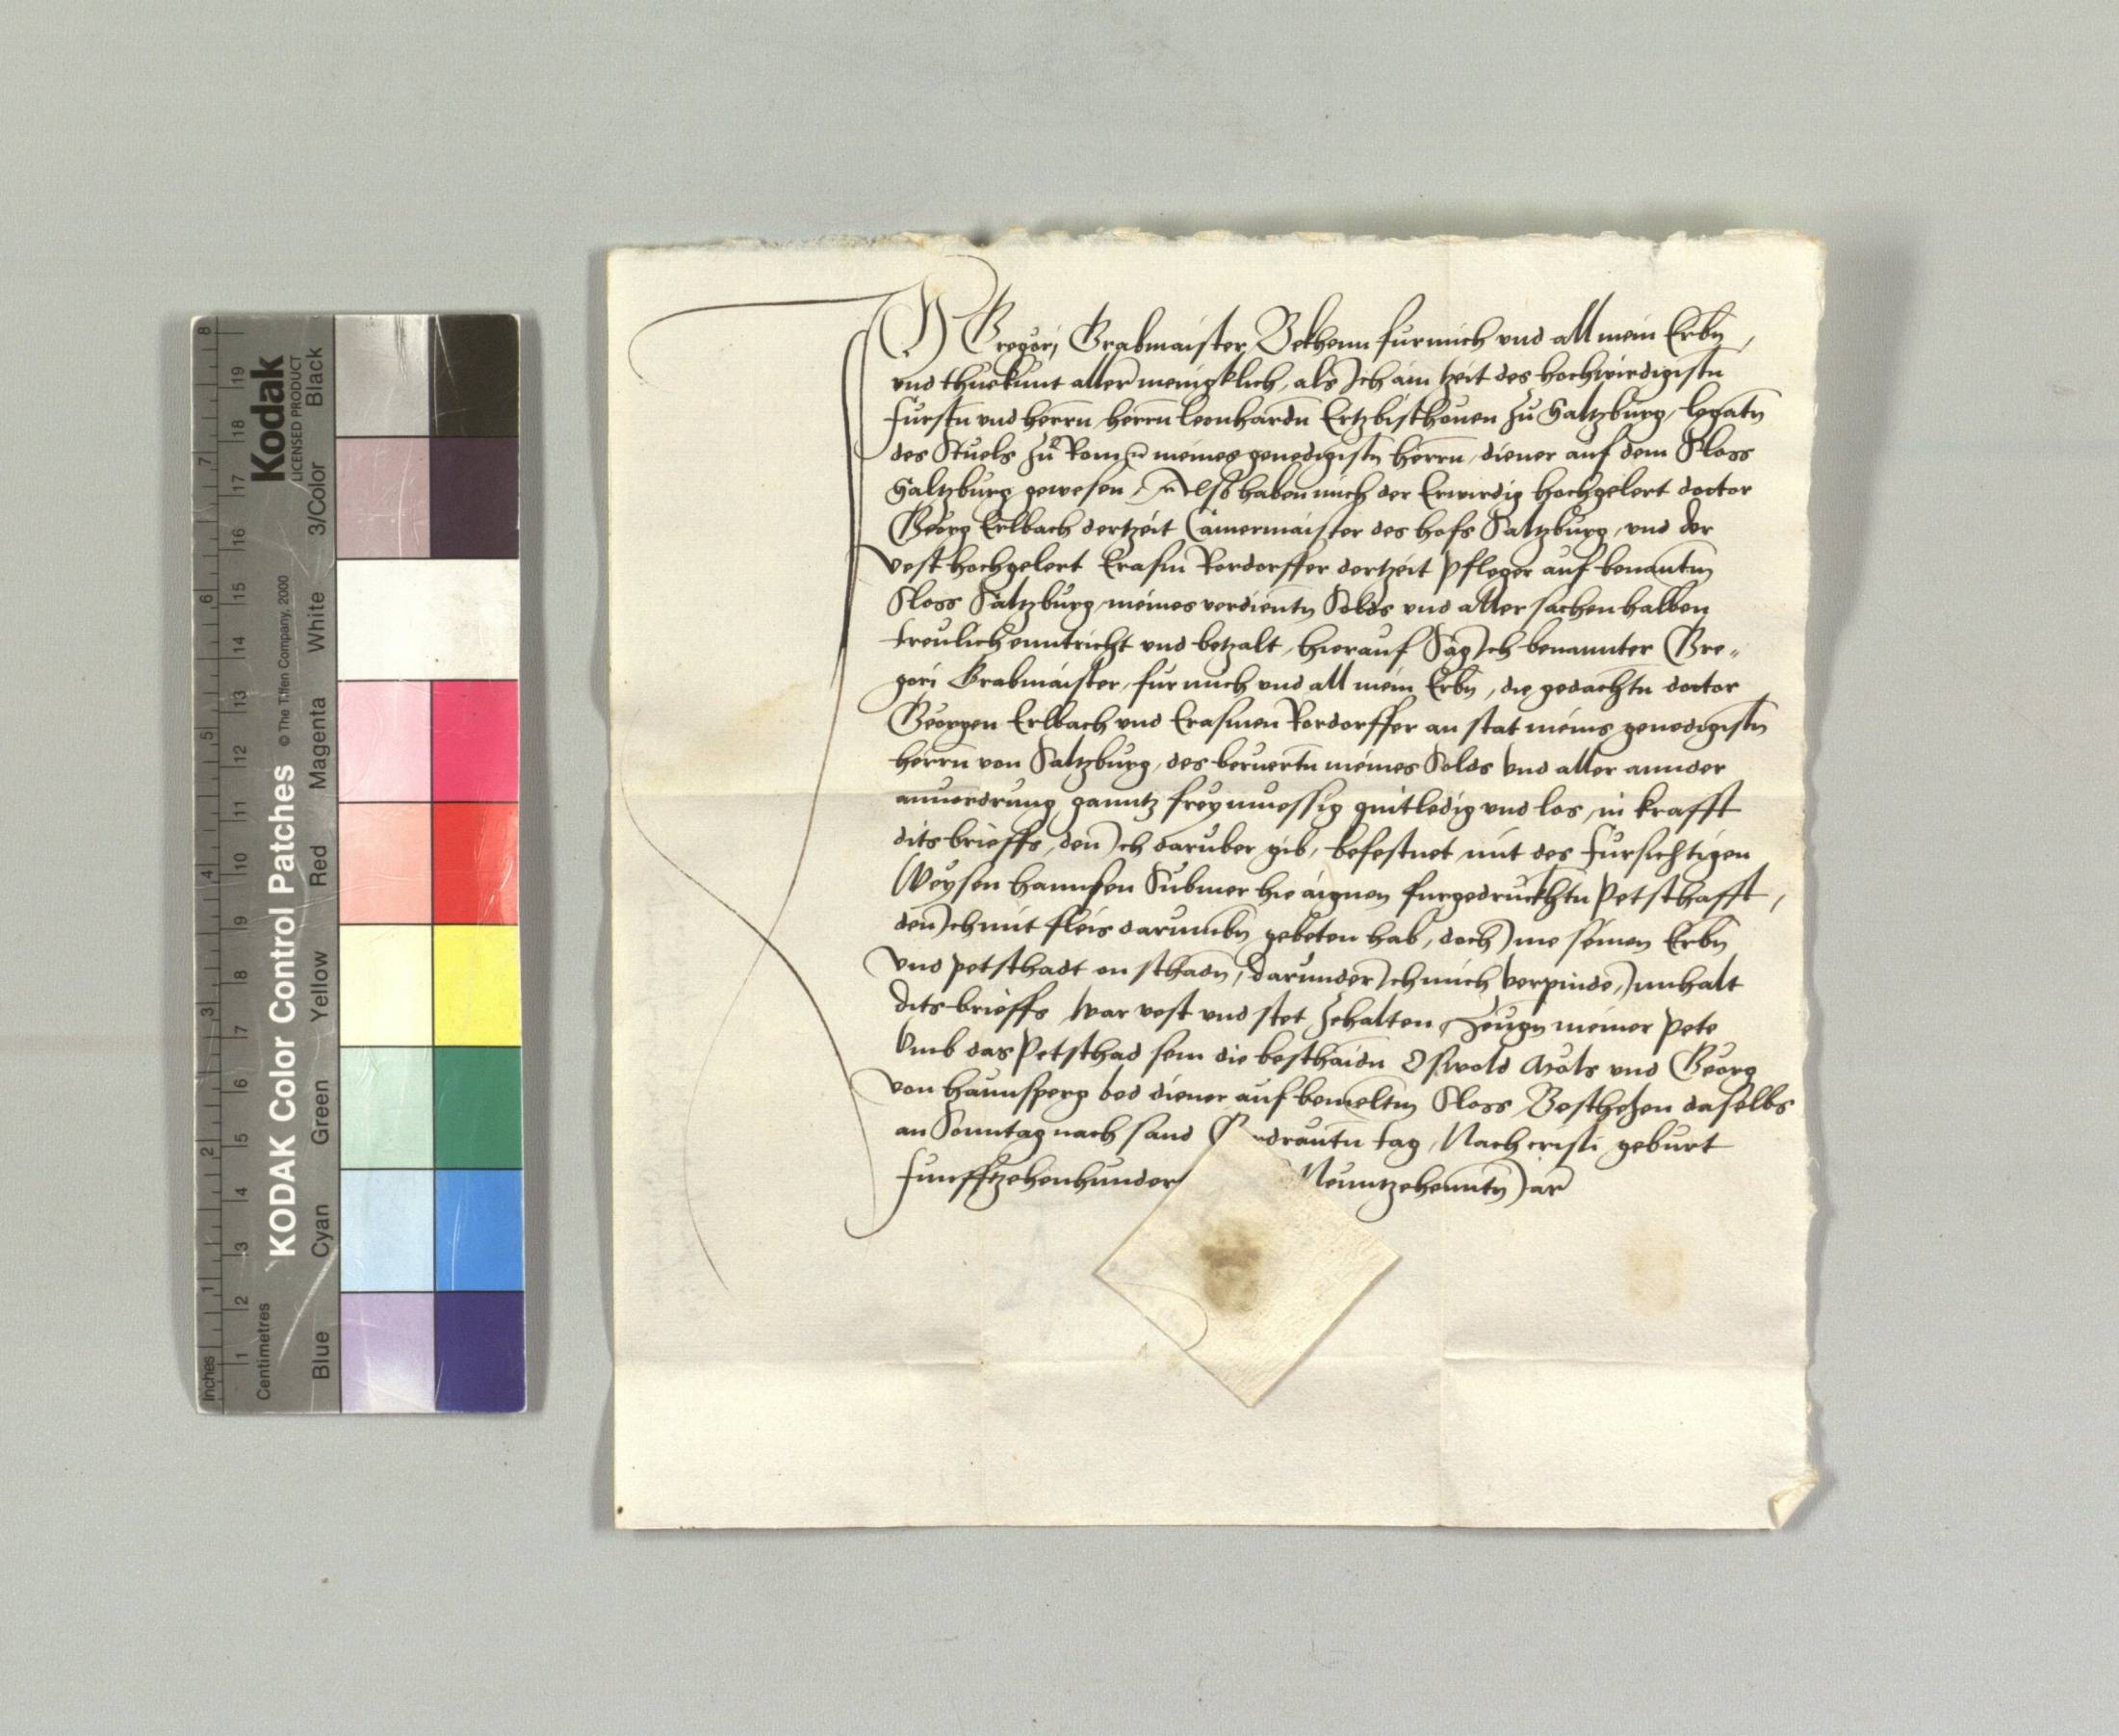 Kodak
LICENSED PRODUCT
KODAK Color Control Patches
© The Tiffen Company, 2000
Blue Cyan Green Yellow Red Magenta White 3/Color Black
Inches 1 2 3 4 5 6 7 8
Centimetres 1 2 3 4 5 6 7 8 9 10 11 12 13 14 15 16 17 18 19
Gregorj Grabmaister Bekhenn fur mich vnd all mein Erbn,
vnd thue kunt allermenigklich, als Ich ain zeit des hochwirdigistn
furstn vnd herrn herrn leonhardn Ertzbischouen zu Saltzburg, legatn
des Stuels zu Rom meines genedigistn herrn, diener auf dem Sloss
Saltzburg gewesen, Also haben mich der Erwirdig hochgelert doctor
Georg Erlbach dertzeit Camermaister des hofs Saltzburg, vnd der
vest hochgelert Erasm Rordorffer dertzeit pfleger auf benantm
Sloss Saltzburg meines verdientn Solds vnd aller sachen halben
treulich enntricht vnd betzalt, hierauf Sag Ich benannter Gre-
gori Grabmaister, fur mich vnd all mein Erbn, die gedachtn doctor
Georgen Erlbach vnd Erasmen Rordorffer an stat meins genedigistn
herrn von Saltzburg, des beruertn meines Solds vnd aller annder
anuordrung ganntz frey muessig quitledig vnd los, in krafft
dits brieffs, den Ich daruber gib, befestnet mit des fursichtigen
Weysen hannsen hie aignen furgedruckhtn Petschafft,
den Ich mit fleis darumbn gebeten hab, doch Ime seinen Erbn
vnd petschadt on schadn, darunder Ich mich verpinde, Innhalt
dits brieffs war vest vnd stet zehalten, Zeugn meiner pete
vmb das Petschad sein die beschaidn Oswold vnd Georg
von haunsperg bed diener auf bemeltm Sloss Beschehen daselbs
an Sonntag nach sand drautn tag, Nach cristi geburt
funfftzehenhundert Neuntzehenntn Jar